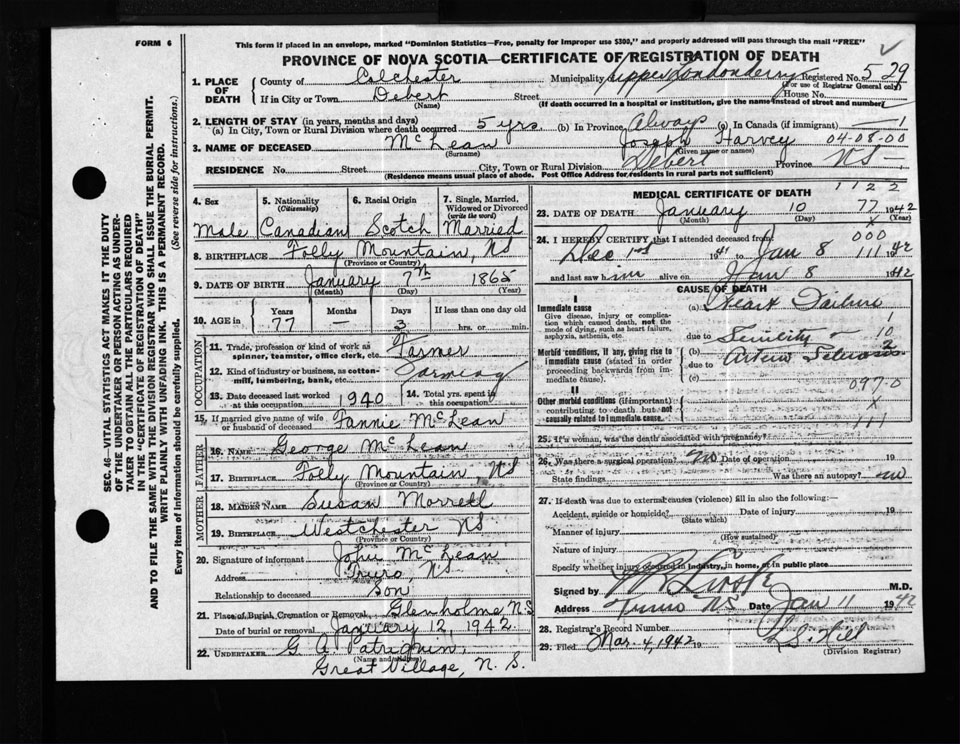 FORM 6
This form if placed in an envelope, marked "Dominion Statistics—Free, penalty for improper use $300," and properly addressed will pass through the mail "FREE"
PROVINCE OF NOVA SCOTIA—CERTIFICATE OF REGISTRATION OF DEATH
SEC. 46—VITAL STATISTICS ACT MAKES IT THE DUTY
OF THE UNDERTAKER OR PERSON ACTING AS UNDER-
TAKER TO OBTAIN ALL THE PARTICULARS REQUIRED
IN THE "CERTIFICATE OF REGISTRATION OF DEATH"
AND TO FILE THE SAME WITH THE DIVISION REGISTRAR WHO SHALL ISSUE THE BURIAL PERMIT.
WRITE PLAINLY WITH UNFADING INK. THIS IS A PERMANENT RECORD.
Every item of information should be carefully supplied. (See reverse side for instructions.)
1. PLACE OF DEATH County of Colchester Municipality Upper Londonderry Registered No. 529
(For use of Registrar General only)
If in City or Town Debert Street House No.
(Name) (If death occurred in a hospital or institution, give the name instead of street and number)
2. LENGTH OF STAY (in years, months and days)
(a) In City, Town or Rural Division where death occurred 5 yrs. (b) In Province Always (c) In Canada (if immigrant) — 1
3. NAME OF DECEASED McLean Joseph Harvey 04-08-00
(Surname) (Given name or names)
RESIDENCE No. Street City, Town or Rural Division Debert Province NS —
(Residence means usual place of abode. Post Office Address for residents in rural parts not sufficient)
4. Sex 5. Nationality (Citizenship) 6. Racial Origin 7. Single, Married, Widowed or Divorced (write the word)
Male Canadian Scotch Married
8. BIRTHPLACE Folly Mountain, NS
(Province or Country)
9. DATE OF BIRTH January 7th 1865
(Month) (Day) (Year)
10. AGE in Years Months Days If less than one day
77 — 3 hrs. or min.
OCCUPATION
11. Trade, profession or kind of work as spinner, teamster, office clerk, etc. Farmer
12. Kind of industry or business, as cotton-mill, lumbering, bank, etc. Farming
13. Date deceased last worked at this occupation 1940 14. Total yrs. spent in this occupation
15. If married give name of wife or husband of deceased Fannie McLean
FATHER
16. NAME George McLean
17. BIRTHPLACE Folly Mountain, NS
(Province or Country)
MOTHER
18. MAIDEN NAME Susan Morrell
19. BIRTHPLACE Westchester NS
(Province or Country)
20. Signature of informant John McLean
Address Truro, NS
Relationship to deceased Son
21. Place of Burial, Cremation or Removal Glenholme N.S.
Date of burial or removal January 12, 1942.
22. UNDERTAKER G. A. Patriquin,
(Name and address)
Great Village, N. S.
MEDICAL CERTIFICATE OF DEATH
1 1 2 2
23. DATE OF DEATH January 10 77 1942
(Month) (Day) (Year)
X
24. I HEREBY CERTIFY that I attended deceased from 000
Dec 1st 1941 to Jan 8 111 1942
and last saw him alive on Jan 8 1942
CAUSE OF DEATH
I
Immediate cause (a) Heart Failure
Give disease, injury or complication which caused death, not the mode of dying, such as heart failure, asphyxia, asthenia, etc.
1
due to Senility 10
2
Morbid conditions, if any, giving rise to immediate cause (stated in order proceeding backwards from immediate cause). (b) due to Arterio Sclerosis
(c)
097-0
II
Other morbid conditions (if important) contributing to death but not causally related to immediate cause. X
111
25. If a woman, was the death associated with pregnancy?
26. Was there a surgical operation? no Date of operation 19
State findings Was there an autopsy? no
27. If death was due to external causes (violence) fill in also the following:—
Accident, suicide or homicide? Date of injury 19
(State which)
Manner of injury
(How sustained)
Nature of injury
Specify whether injury occurred in industry, in home, or in public place
Signed by M.D.
Address Truro NS Date Jan 11 1942
28. Registrar's Record Number
29. Filed Mar. 4, 1942 19
(Division Registrar)